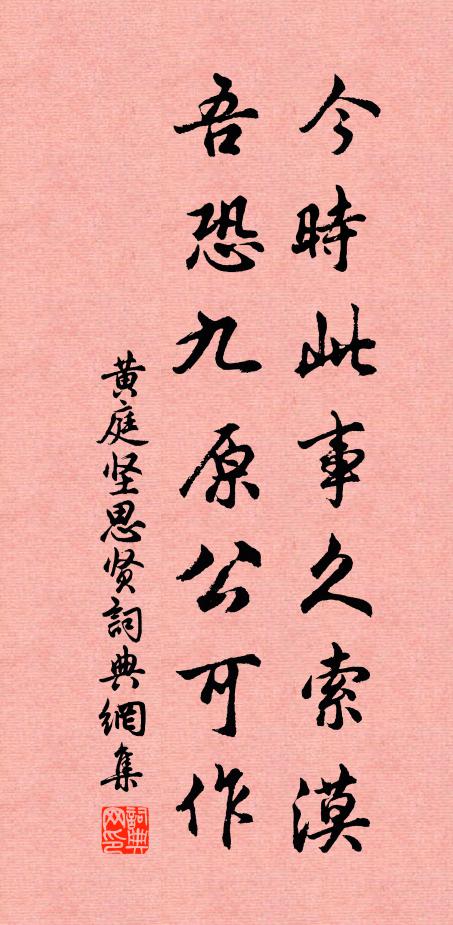 今時此事久索漠
吾恐九原公可作
黄庭坚思贤詞典網集
詞典网印